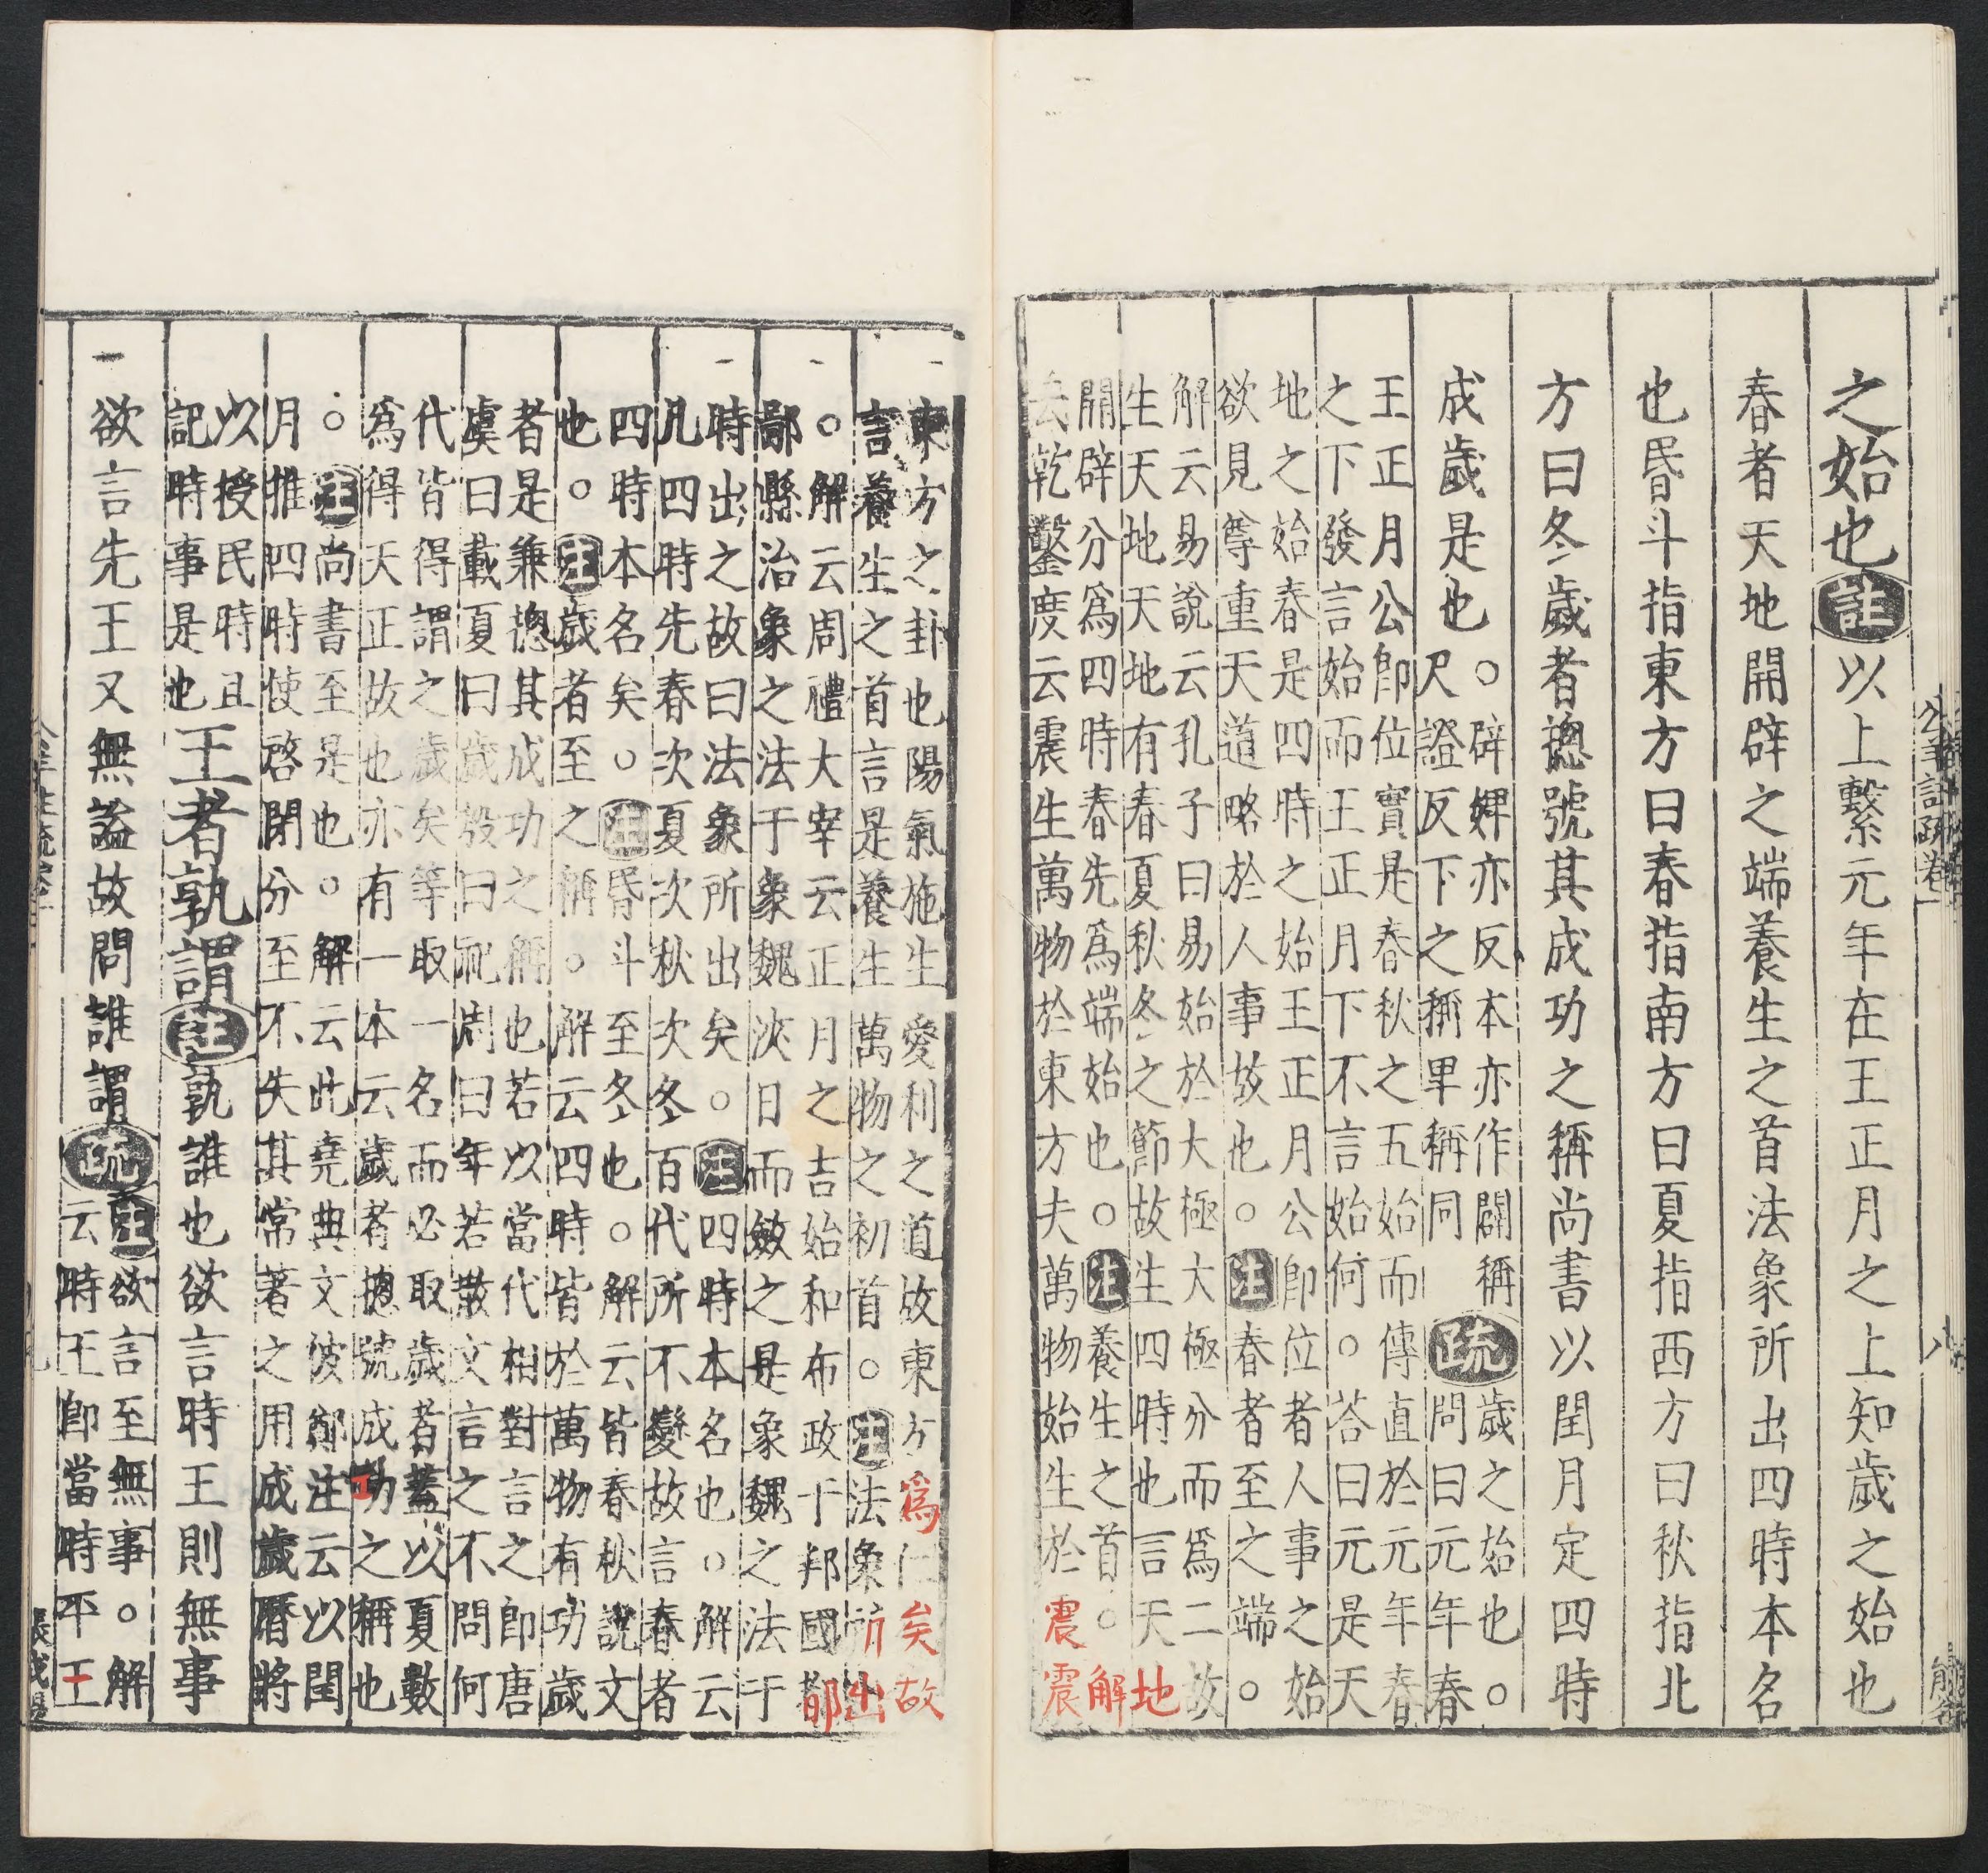 之始也註以上繫元年在王正月之上知歲之始也
春者天地開辟之端養生之首法象所出四時本名
也昏斗指東方曰春指南方曰夏指西方曰秋指北
方曰冬歲者緫號其成功之稱尚書以閏月定四時
成歲是也
○辟婢亦反本亦作闢稱
尺證反下之稱畢稱同
疏
歲之始也○
問曰元年春
王正月公即位實是春秋之五始而傳直於元年春
之下發言始而王正月下不言始何○荅曰元是天
地之始春是四時之始王正月公即位者人事之始
欲見尊重天道略於人事故也○注春者至之端○
解云易說云孔子曰易始於大極大極分而爲二故
生天地天地有春夏秋冬之節故生四時也言天地
開辟分爲四時春先爲端始也○注養生之首○解
云乾鑿度云震生萬物於東方夫萬物始生於震震
東方之卦也陽氣施生愛利之道故東方爲仁矣故
言養生之首言是養生萬物之初首○注法象所出
○解云周禮大宰云正月之吉始和布政于邦國都
鄙縣治象之法于象魏浹日而斂之是象魏之法于
時出之故曰法象所出矣○注四時本名也○解云
凡四時先春次夏次秋次冬百代所不變故言春者
四時本名矣○注昏斗至冬也○解云皆春秋說文
也○注歲者至之稱○解云四時皆於萬物有功歲
者是兼緫其成功之稱也若以當代相對言之即唐
虞曰載夏曰歲殷曰祀周曰年若散文言之不問何
代皆得謂之歲矣等取一名而必取歲者蓋以夏數
爲得天正故也亦有一本云歲者緫號成功之稱也
○注尚書至是也○解云此堯典文彼鄭注云以閏
月推四時使啓閉分至不失其常著之用成歲曆將
以授民時且
記時事是也
王者孰謂註孰誰也欲言時王則無事
欲言先王又無謚故問誰謂疏
注欲言至無事○解
云時王即當時平王